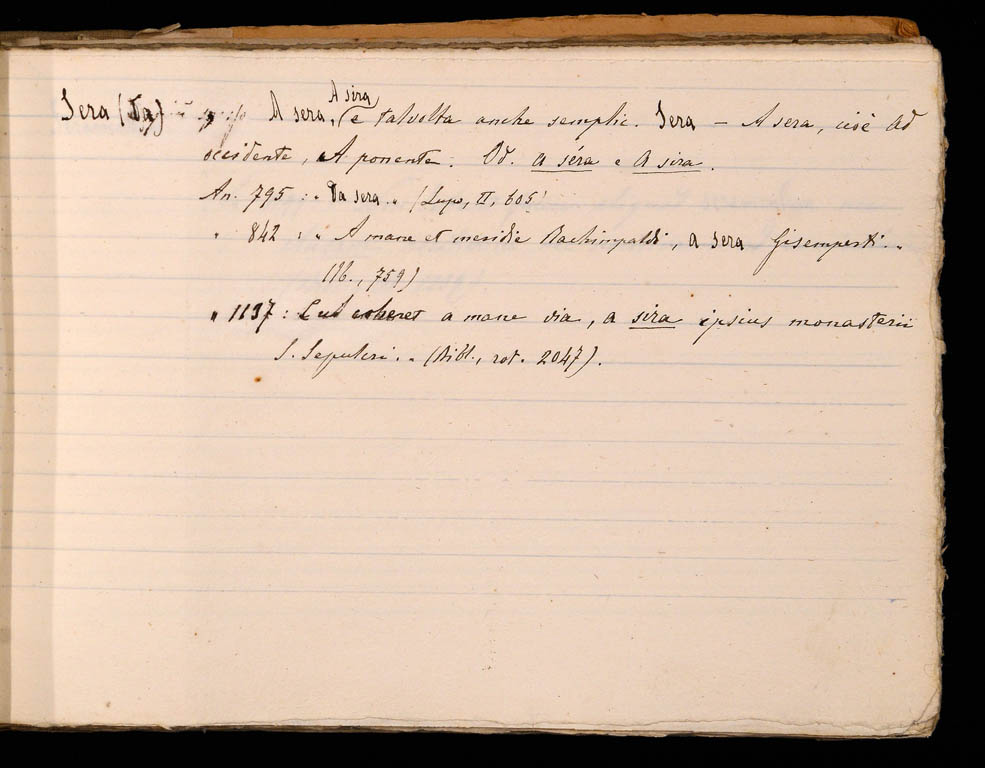 Sera (Da) A sera, A sira e talvolta anche semplic. Sera — A sera, cioè ad
occidente, A ponente. Od. a séra e A sira.
An. 795 : „ Da sera „ (Lupo, II, 605)
„ 842 : „ A mane et meridie Rachimpaldi, a sera Gisemperti. „
(Ib., 759)
„ 1137 : „ a mane via, a sira ipsius monasterii
S. Sepulcri. „ (Bibl., rot. 2047).